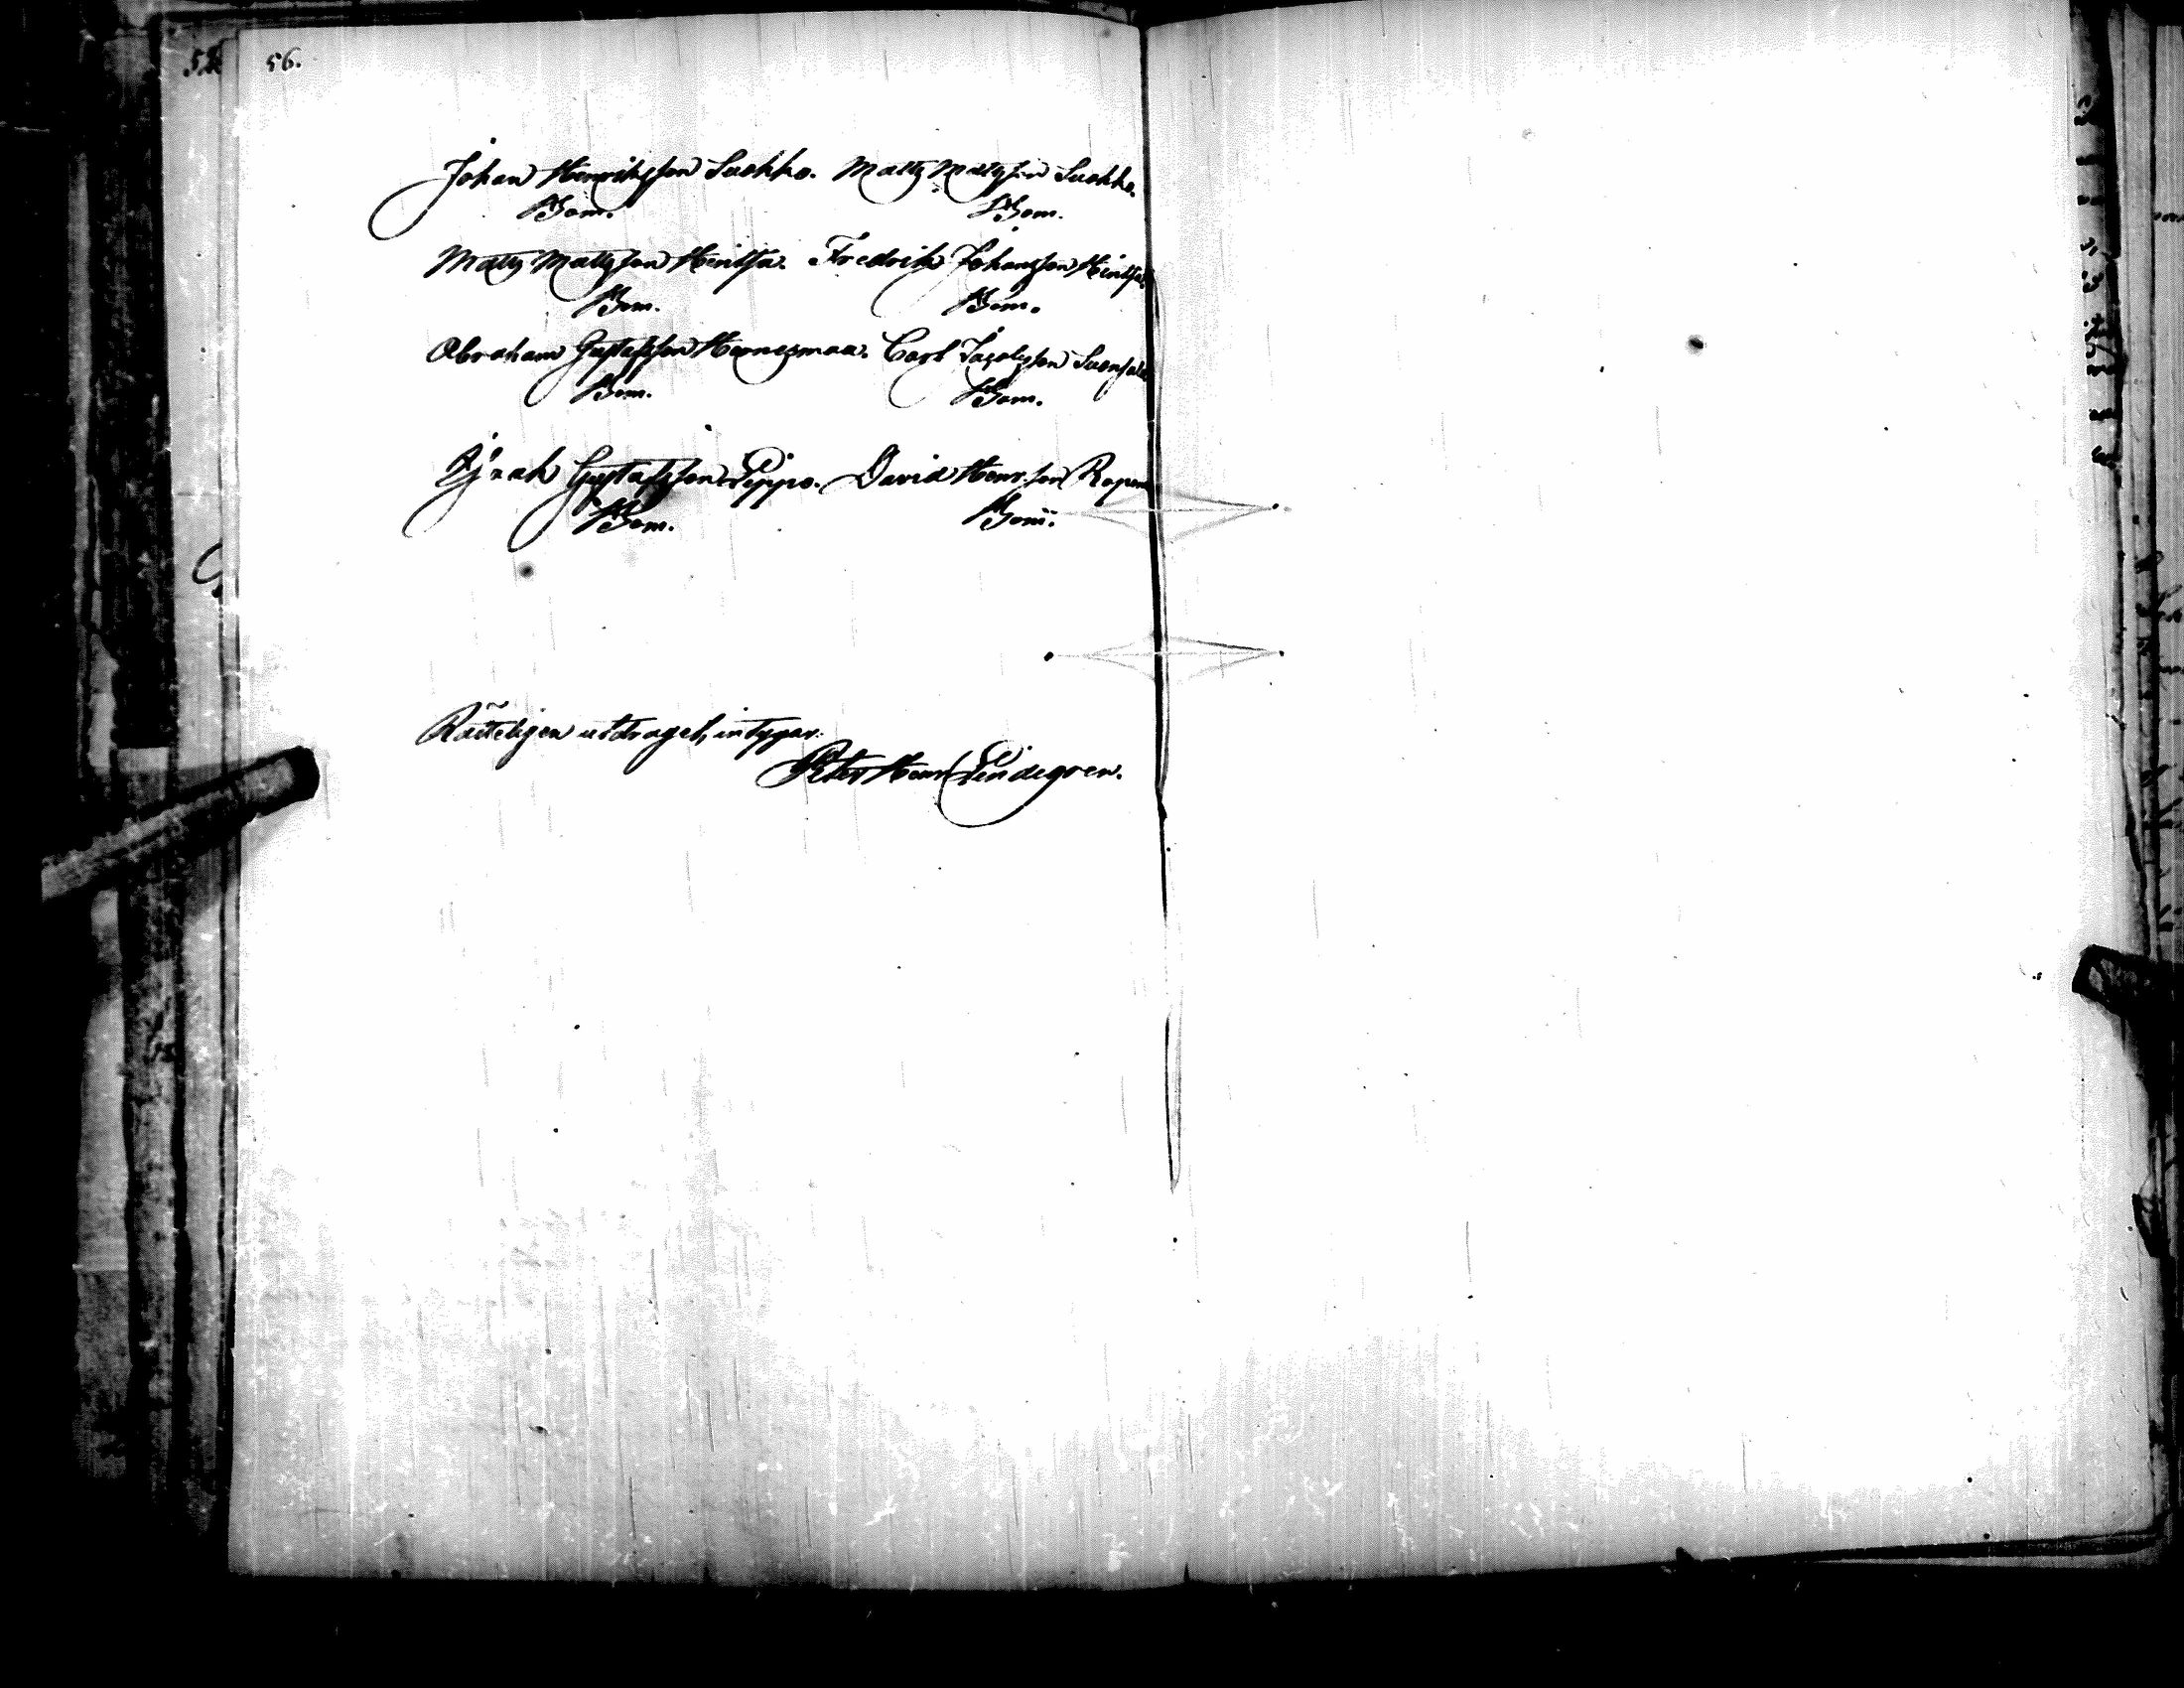 56.
Johan Henrichsson Suokko. Matts Mattsson Suokko.
Bom. Bom.
Matts Mattsson Heintsa. Fredrik Johansson Heintsa.
Bom. Bom.
Abraham Gustafsson Hernesmaa. Carl Jacobsson
Bom. Bom.
Gustafsson Pippo. David Henr:son
Bom. Bom.
Rätteligen utdraget, intygar.
Peter Henr Lindegren.